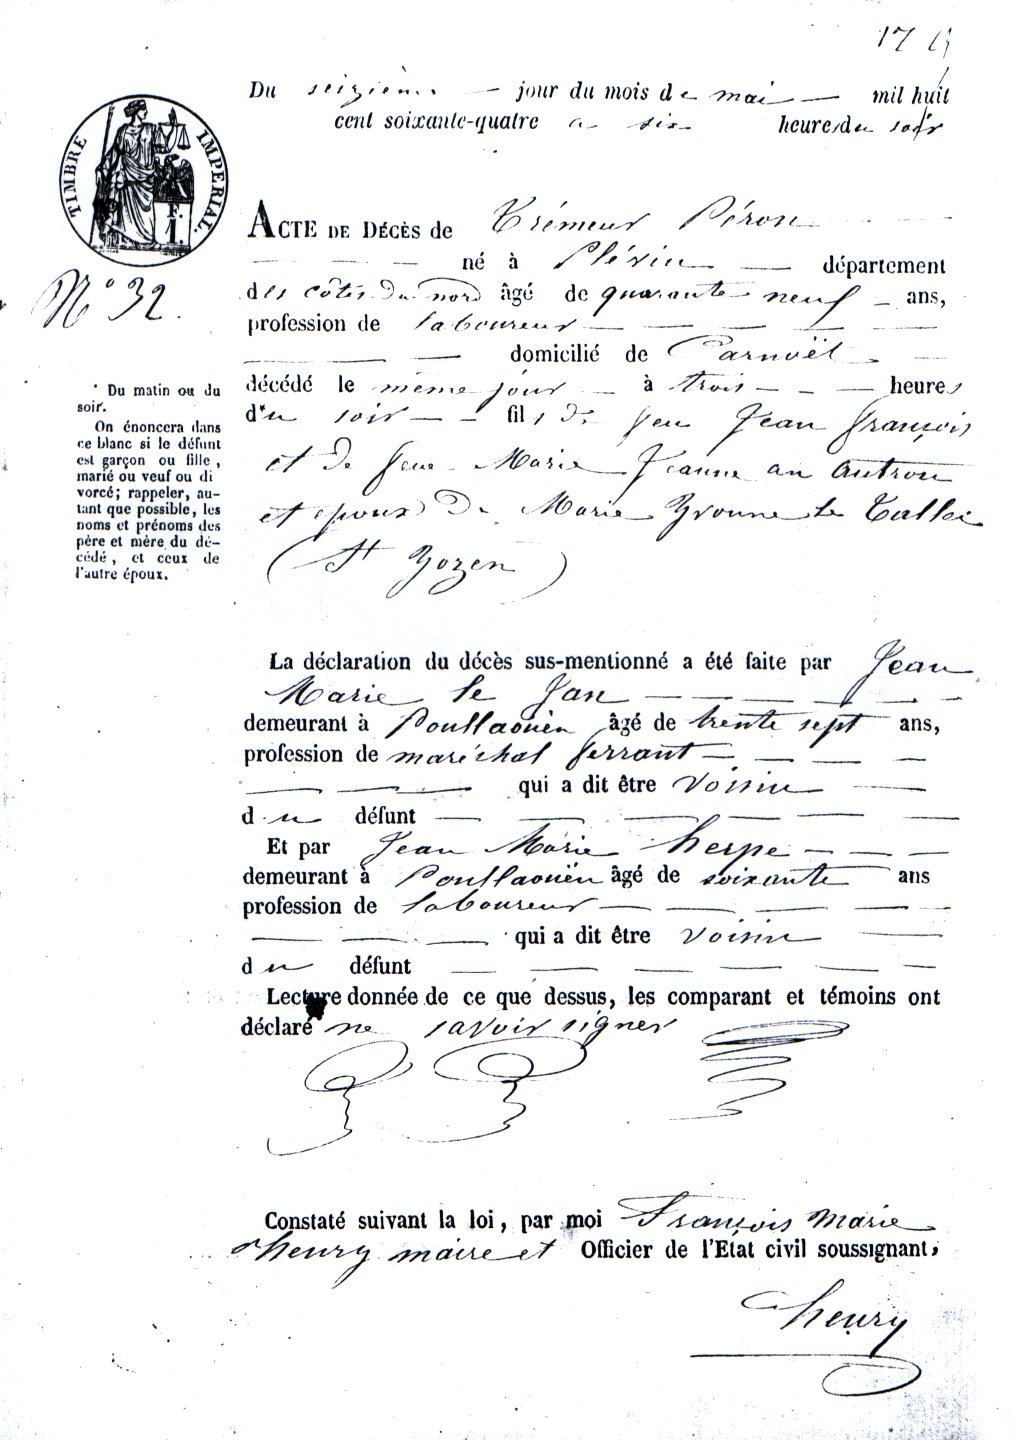 17
Du seizième jour du mois de mai mil huit
cent soixante-quatre a six heures du soir
TIMBRE IMPERIAL.
F.
1.
ACTE DE DÉCÈS de Trémeur Péron
né à Plévin département
des côtes du nord âgé de quarante neuf ans,
N° 32.
profession de laboureur
domicilié de Carnoët
décédé le même jour à trois heures
du soir fils de feu Jean François
et de feue Marie Jeanne an Autrou
et époux de Marie Yvonne Le
(St Yozen)
* Du matin ou du
soir.
On énoncera dans
ce blanc si le défunt
est garçon ou fille,
marié ou veuf ou di
vorcé; rappeler, au-
tant que possible, les
noms et prénoms des
père et mère du dé-
cédé, et ceux de
l'autre époux.
La déclaration du décès sus-mentionné a été faite par Jean
Marie le Jan
demeurant à Poullaouën âgé de trente sept ans,
profession de maréchal ferrant
qui a dit être voisin
du défunt
Et par Jean Marie herpe
demeurant à Poullaouën âgé de soixante ans
profession de laboureur
qui a dit être voisin
du défunt
Lecture donnée de ce que dessus, les comparant et témoins ont
déclaré ne savoir signer
Constaté suivant la loi, par moi François Marie
Cheury maire et Officier de l'Etat civil soussignant,
Cheury